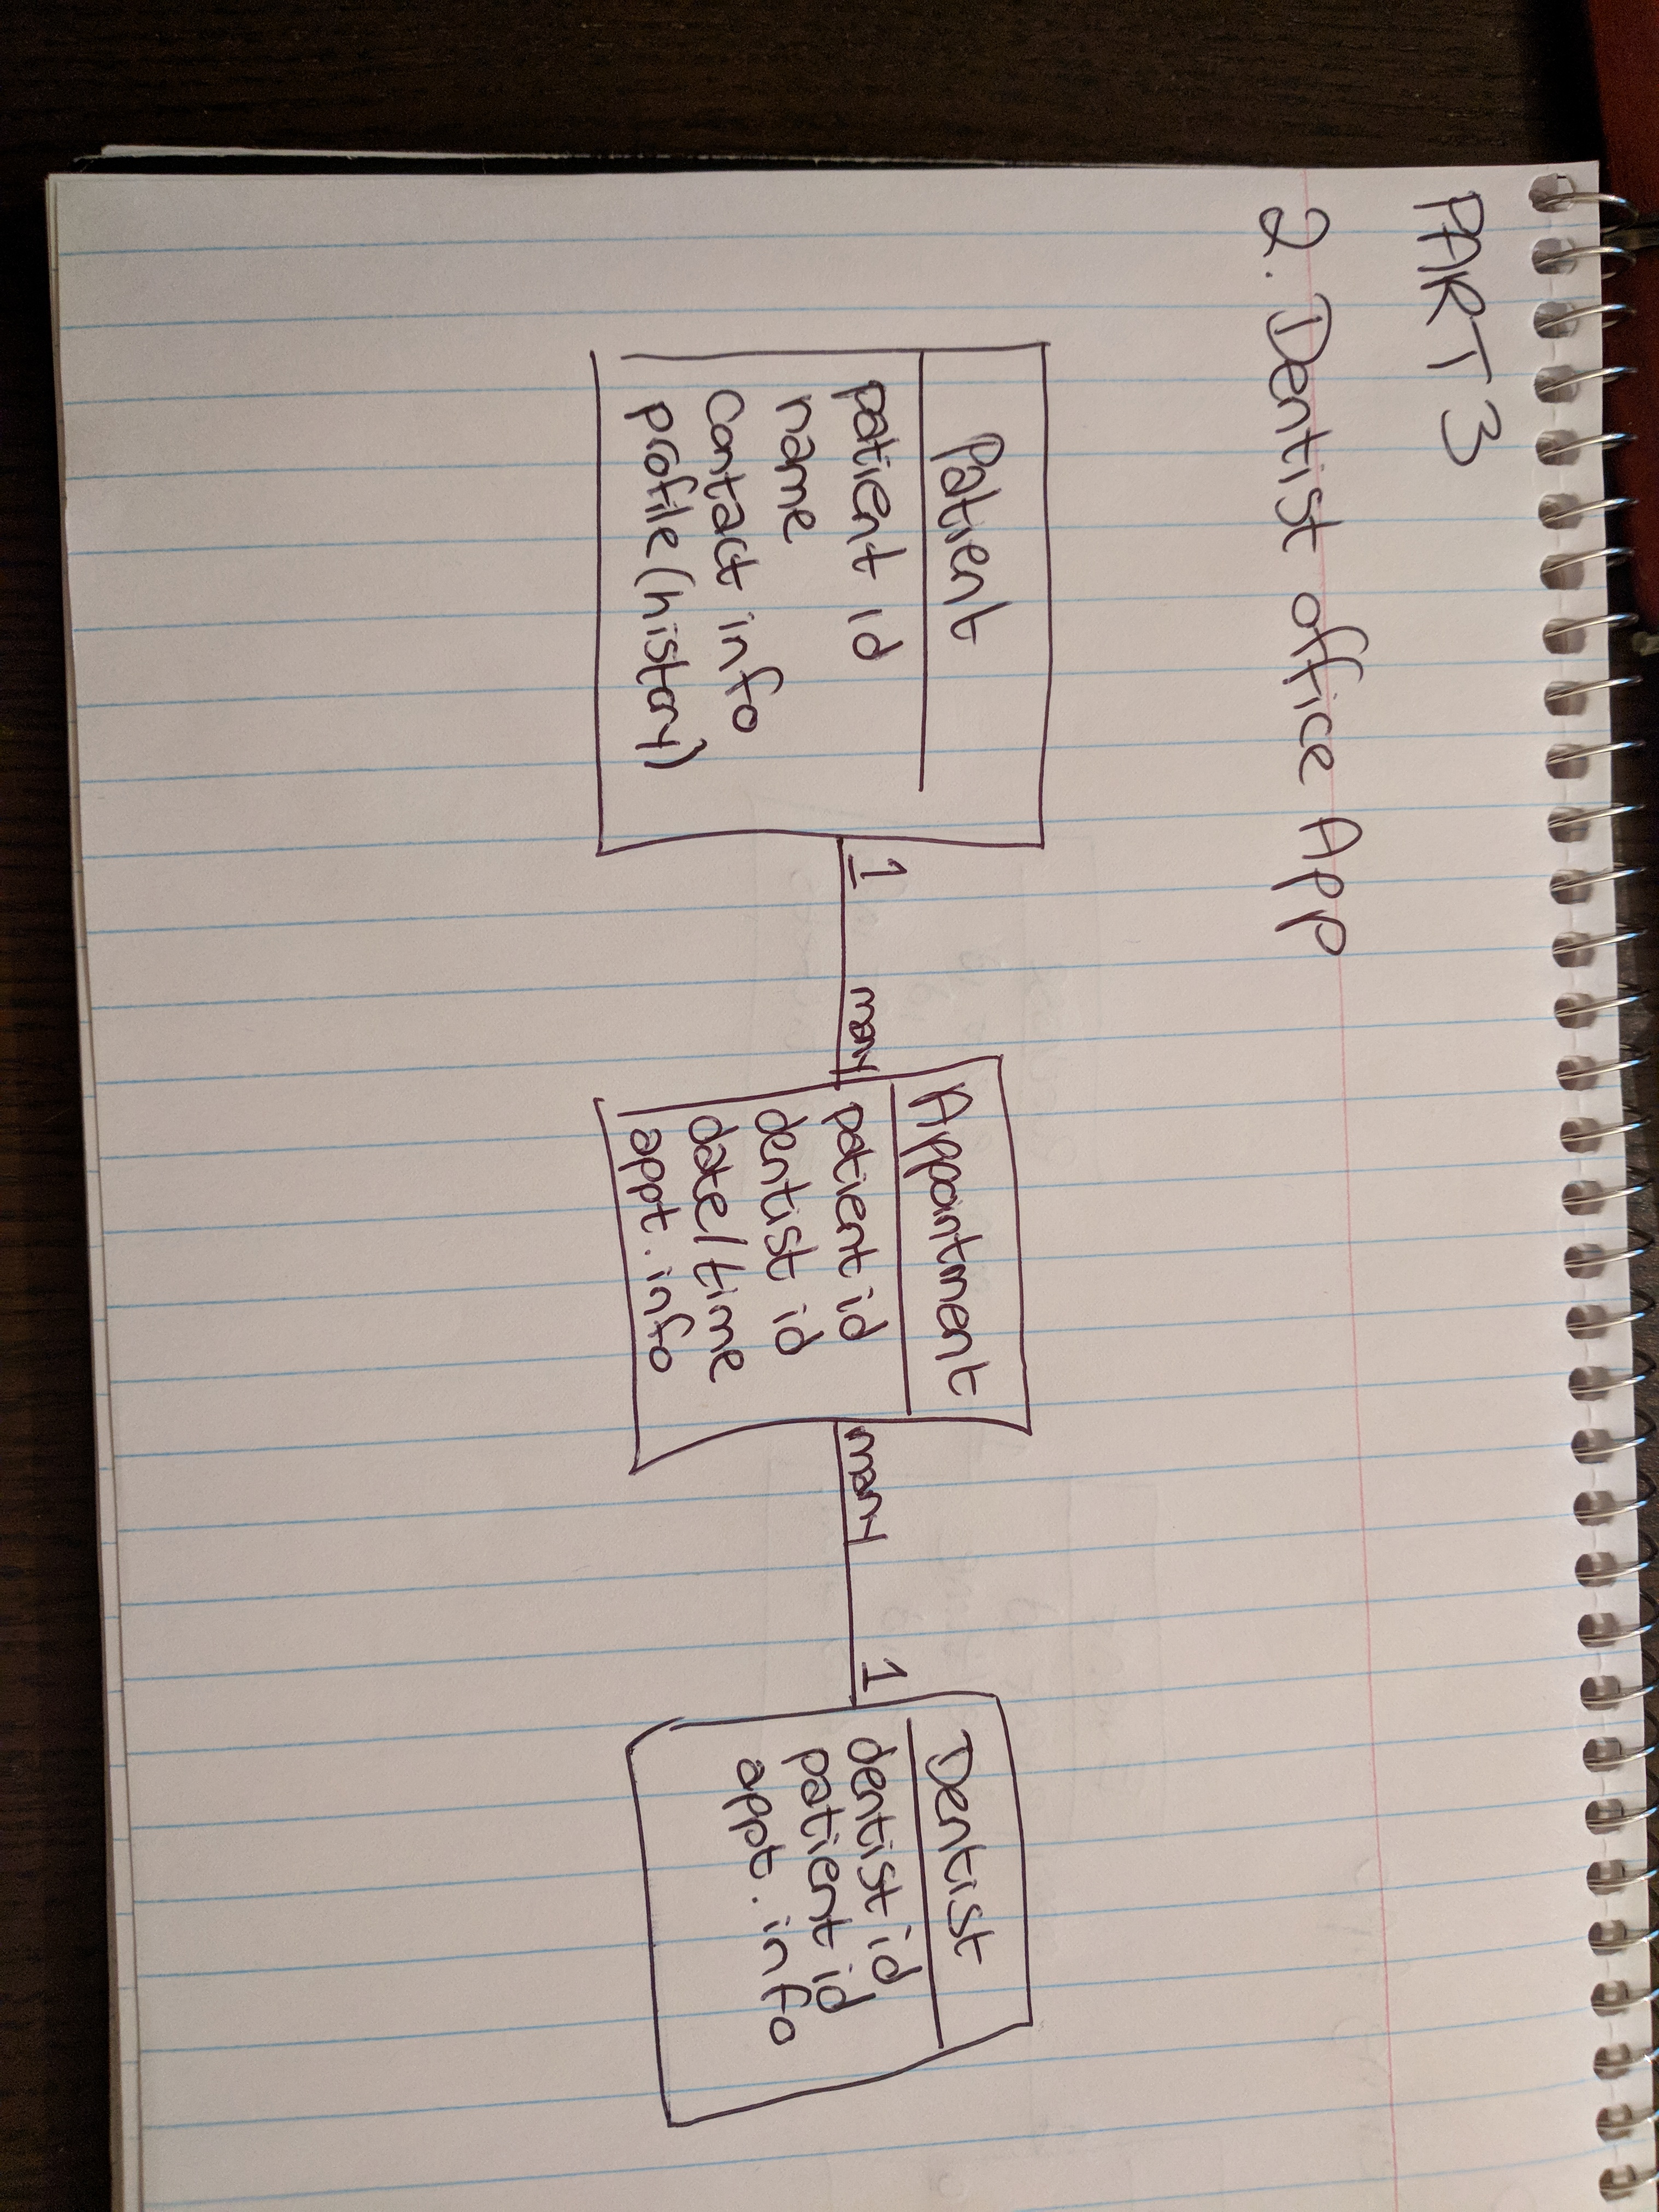 PART 3
2. Dentist office App
Patient
patient id
name
contact info
profile (history)
1
many
Appointment
patient id
dentist id
date/time
appt. info
many
1
Dentist
dentist id
patient id
appt. info